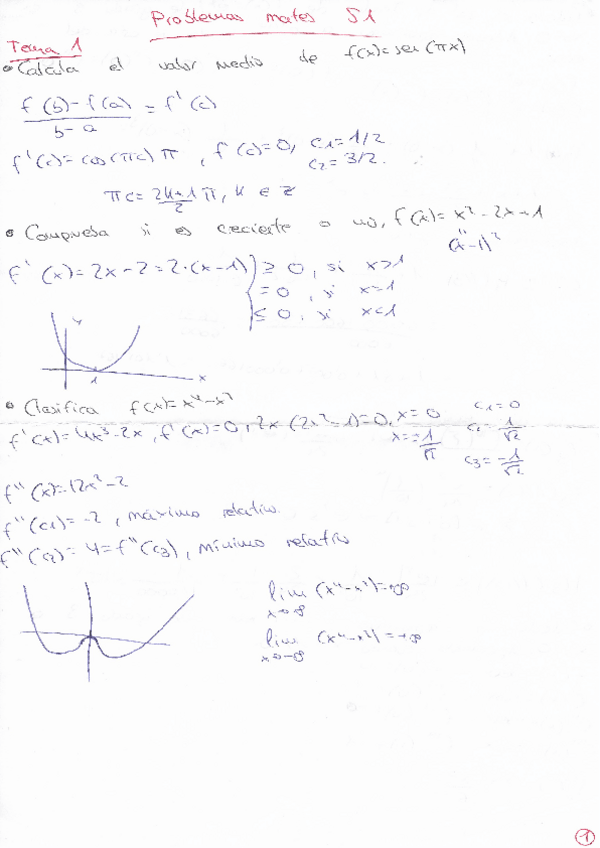 Problemas mates S1
Tema 1
• Calcula el valor medio de f(x)=sen(πx)
f(b)-f(a) / b-a = f'(c)
f'(c)=cos(πc)π, f'(c)=0, c₁=1/2
c₂=3/2.
πc=2k+1/2 π, k ∈ Z
• Comprueba si es creciente o no, f(x)=x²-2x+1
(x-1)²
f'(x)=2x-2=2·(x-1) ≥ 0, si x>1
=0, si x=1
≤ 0, si x<1
y
1
x
• Clasifica f(x)=x⁴-x²
f'(x)=4x³-2x, f'(x)=0, 2x(2x²-1)=0, x=0
c₁=0
c₂=1/√2
c₃=-1/√2
f''(x)=12x²-2
f''(c₁)=-2, máximo relativo.
f''(c₂)=4=f''(c₃), mínimo relativo
lim (x⁴-x²)=+∞
x→∞
lim (x⁴-x²)=+∞
x→-∞
1